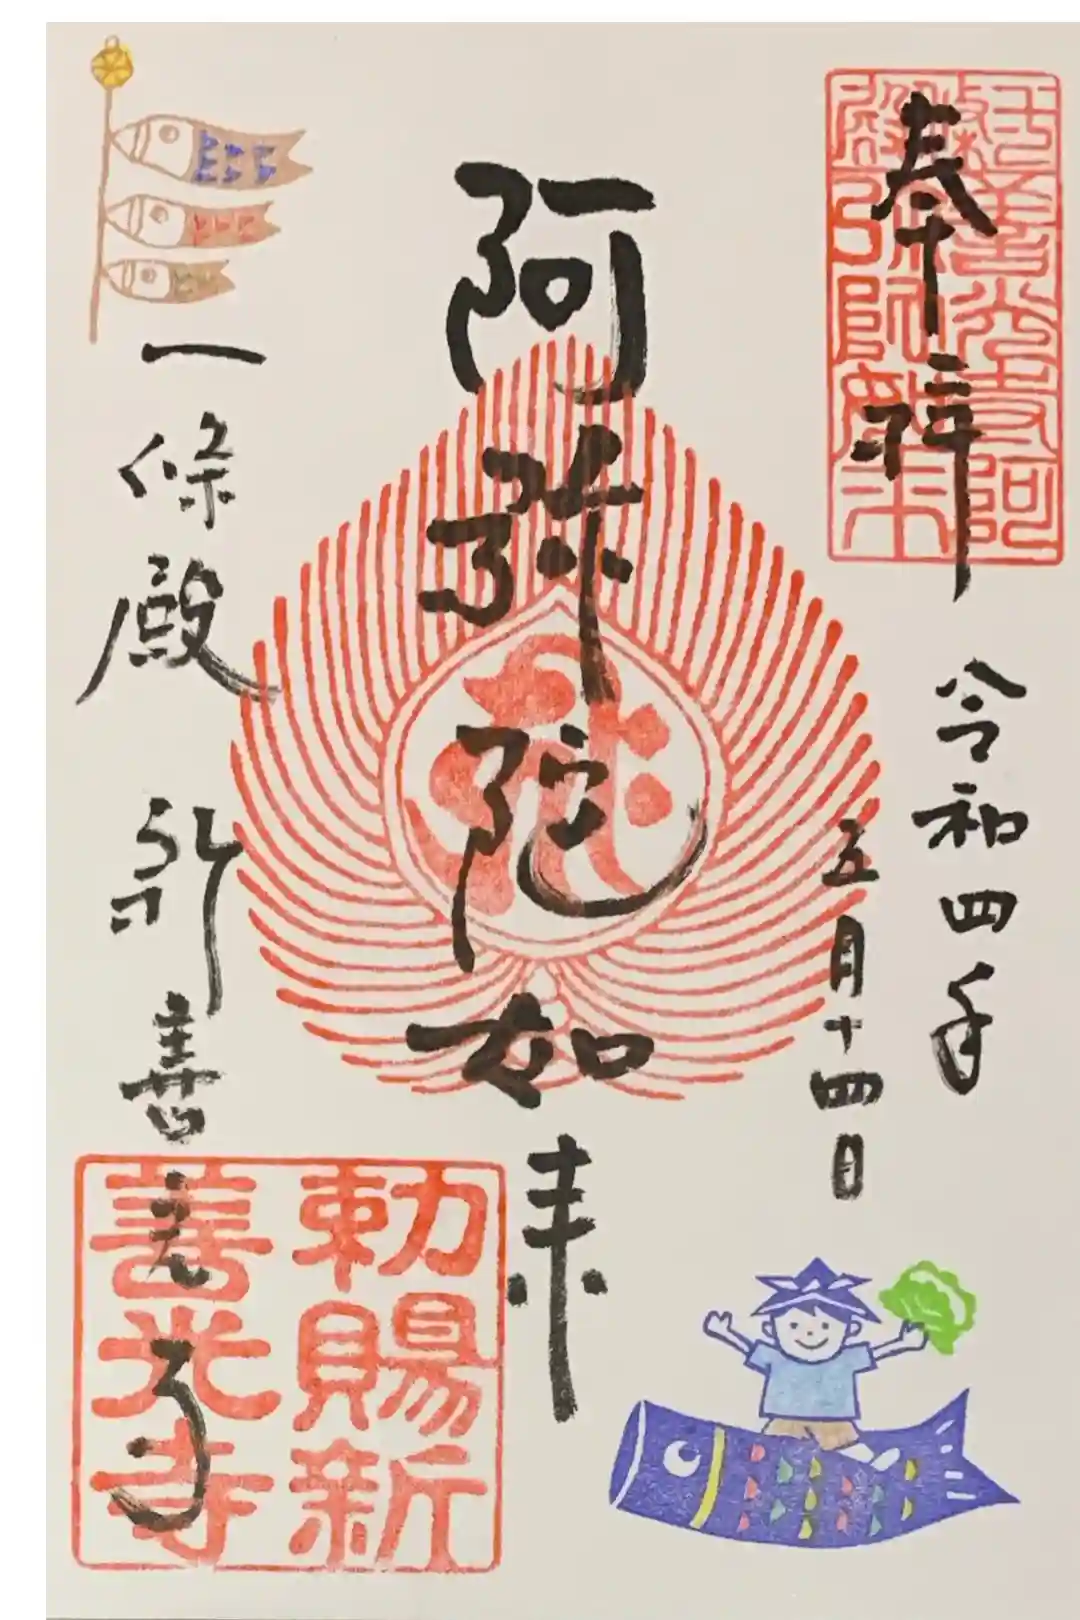 奉拝
令和四年
五月十四日
阿弥陀如来
一條殿 新善光寺
勅賜新
善光寺